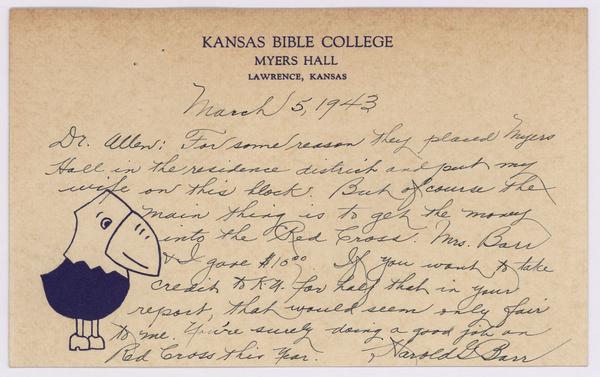 KANSAS BIBLE COLLEGE
MYERS HALL
LAWRENCE, KANSAS
March 5, 1943
Dr. Allen: For some reason they placed Myers
Hall in the residence district and put my
wife on this block. But of course the
main thing is to get the money
into the Red Cross. Mrs. Barr
& I gave $10.00 If you want to take
credit to K.U. for half that in your
report, that would seem only fair
to me. You're surely doing a good job on
Red Cross this Year. Harold G Barr